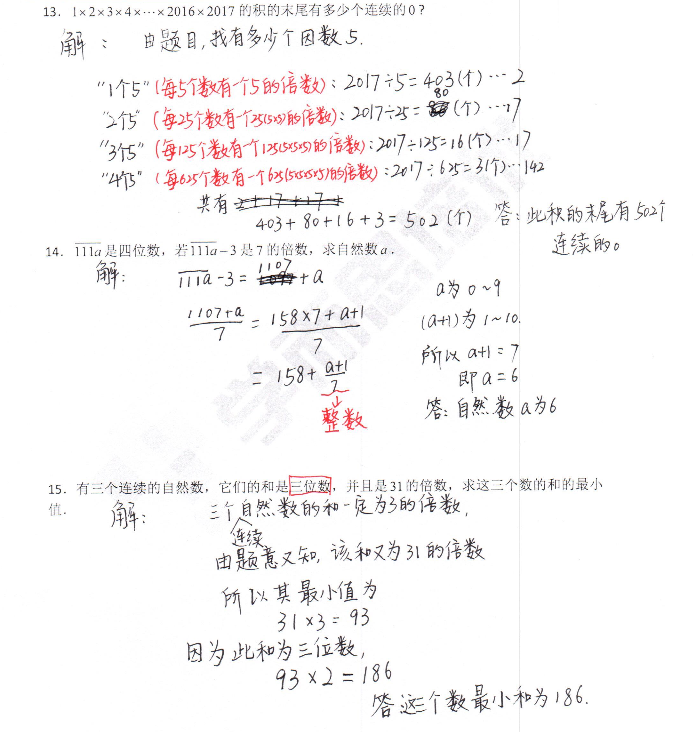 13. 1×2×3×4×⋯×2016×2017 的积的末尾有多少个连续的0?
解: 由题目,找有多少个因数5.
"1个5"(每5个数有一个5的倍数): 2017÷5=403(个)⋯2
"2个5"(每25个数有一个25(5×5)的倍数): 2017÷25=80(个)⋯17
"3个5"(每125个数有一个125(5×5×5)的倍数): 2017÷125=16(个)⋯17
"4个5"(每625个数有一个625(5×5×5×5)的倍数): 2017÷625=3(个)⋯142
共有 2+17+17+
403+80+16+3=502(个) 答:此积的末尾有502个
连续的0
14. 111a是四位数,若111a−3是7的倍数,求自然数a.
解: 111a−3=1107+a
(1107+a)/7=(158×7+a+1)/7
=158+(a+1)/7
整数
a为0~9
(a+1)为1~10.
所以a+1=7
即a=6
答:自然数a为6
15. 有三个连续的自然数,它们的和是三位数,并且是31的倍数,求这三个数的和的最小
值.
解: 三个连续自然数的和一定为3的倍数,
由题意又知,该和又为31的倍数
所以其最小值为
31×3=93
因为此和为三位数,
93×2=186
答这三个数最小和为186.